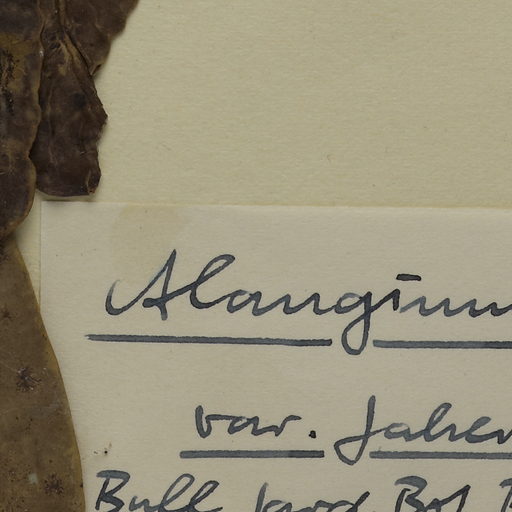 Alangium
var. jaher
Bull. Jard. Bot.